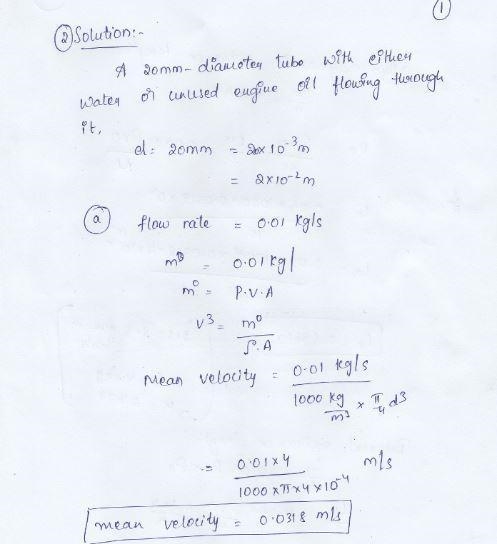 ①
② Solution:-
A 20mm-diameter tube with either
water or unused engine oil flowing through
it.
d = 20mm = 20×10⁻³m
= 2×10⁻²m
ⓐ flow rate = 0.01 kg/s
m° = 0.01 kg/
m° = ρ.V.A
V3 = m°
ρ.A
Mean velocity = 0.01 kg/s
1000 kg/m³ × π/4 d3
= 0.01×4 m/s
1000×π×4×10⁻⁴
mean velocity = 0.0318 m/s